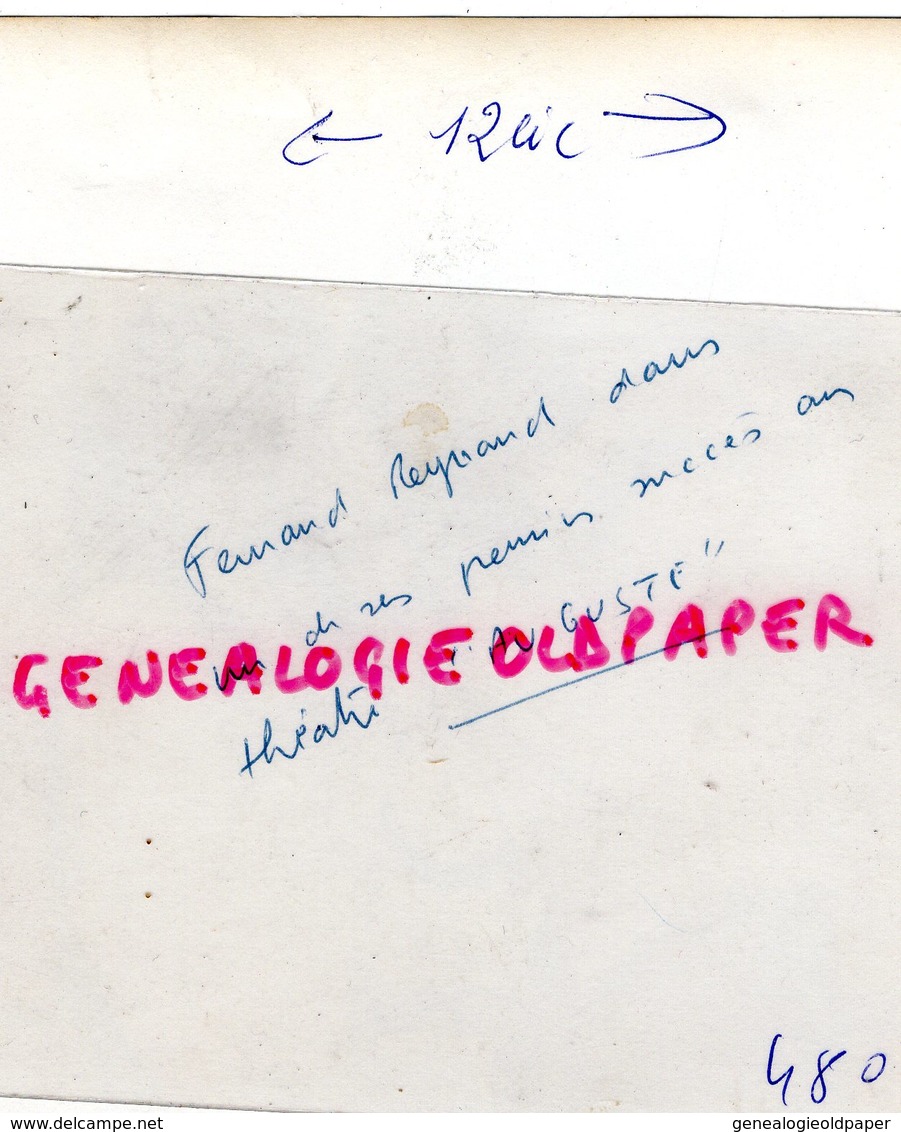 ← 12 cic →
Fernand Reynaud dans
un de ses premiers succès au
théâtre "AUGUSTE"
GENEALOGIE OLDPAPER
480
www.delcampe.net
genealogieoldpaper